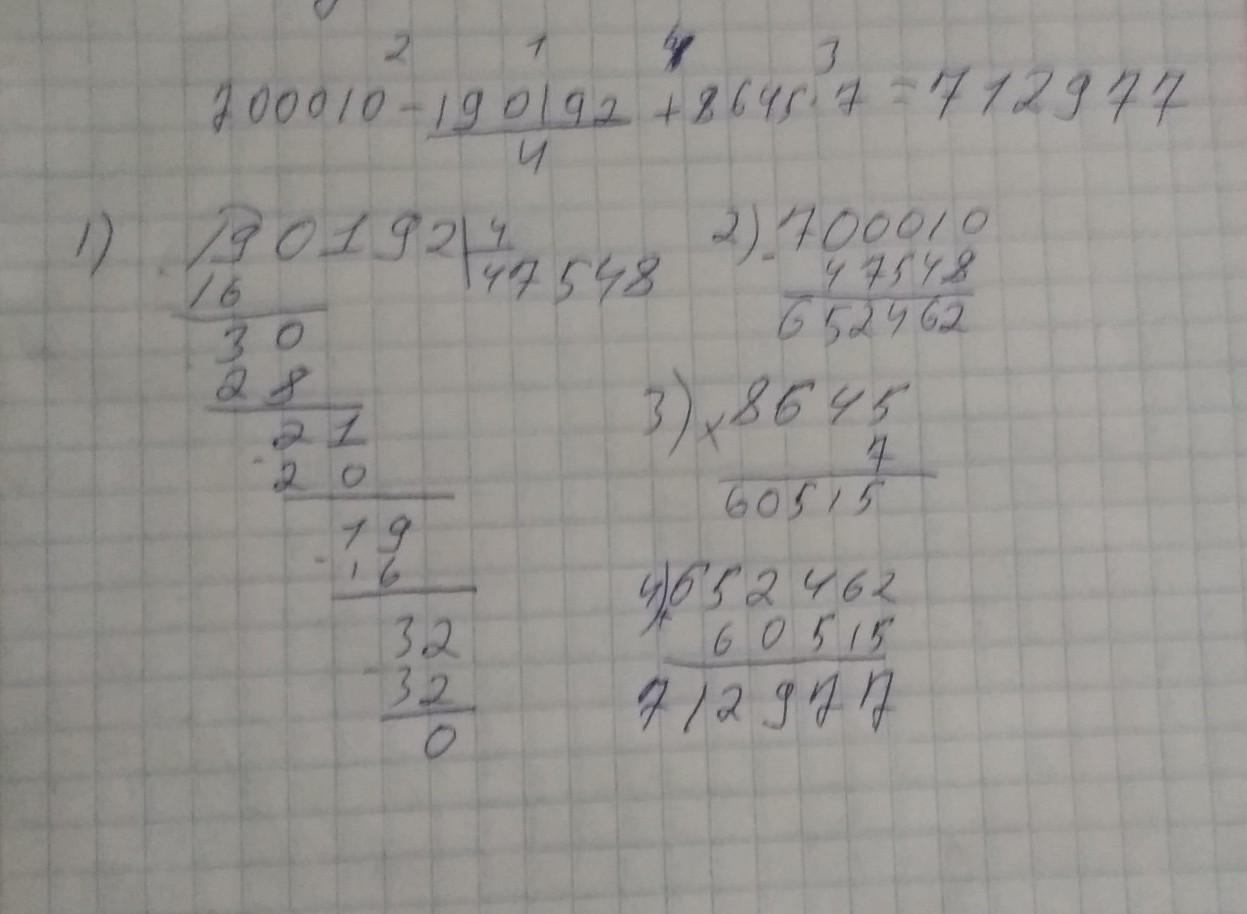 2 1 4 3
700010 - 190192 + 8645 · 7 = 712977
4
1) 190192 | 4
16 47548
30
28
21
- 20
19
- 16
32
- 32
0
2) - 700010
47548
652462
3) x 8645
7
60515
4) + 652462
60515
712977